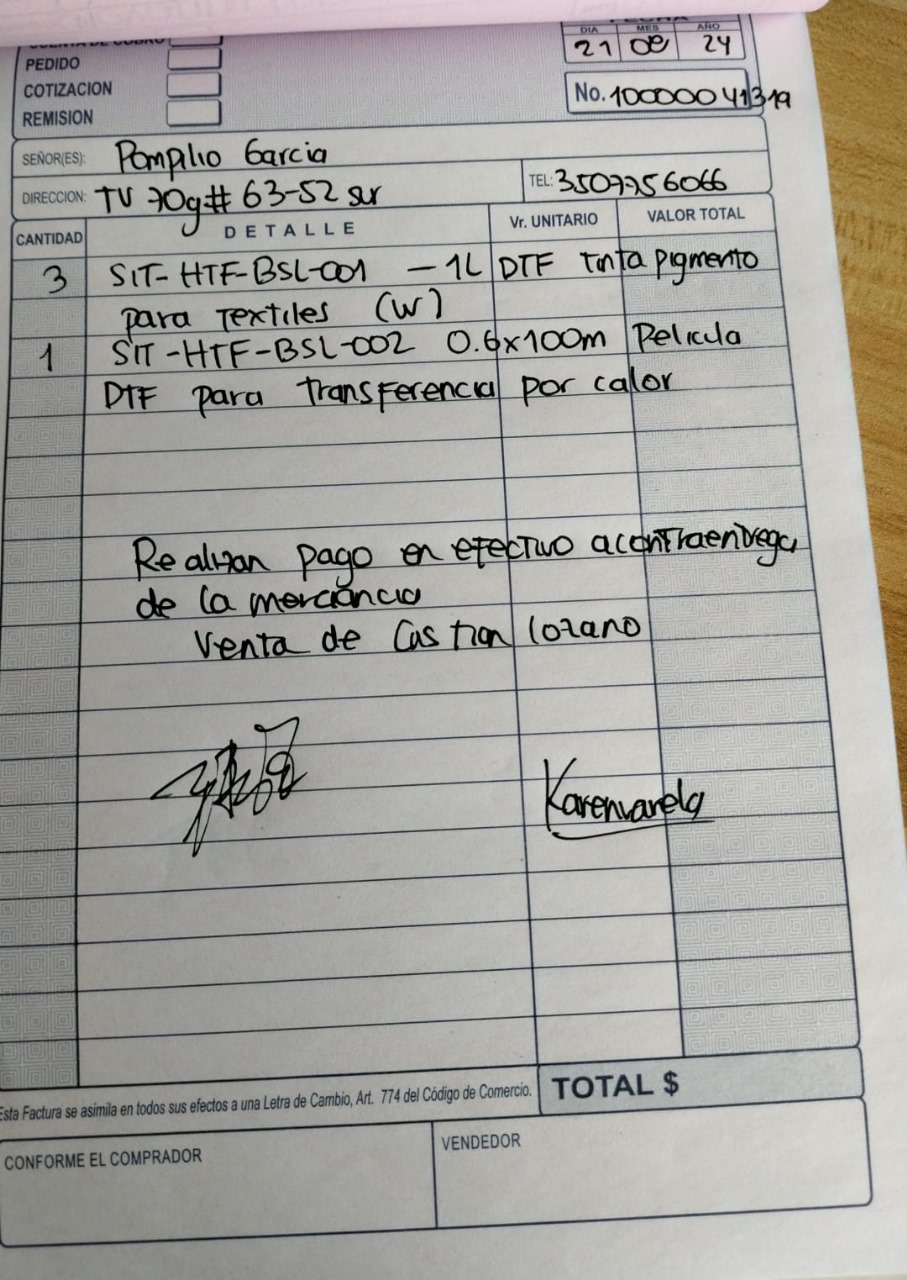 PEDIDO
COTIZACION
REMISION
DIA MES AÑO
21 08 24
No. 10000041319
SEÑOR(ES): Pompilio Garcia
DIRECCION: TV 70g# 63-52 sur
TEL: 3507756066
CANTIDAD DETALLE Vr. UNITARIO VALOR TOTAL
3 SIT-HTF-BSL-001 - 1L DTF Tinta pigmento
para Textiles (W)
1 SIT-HTF-BSL-002 0.6x100m Pelicula
DTF para Transferencia por calor
Realizan pago en efectivo acontraentrega
de la merciancia
Venta de Cristian lozano
Karenvarela
Esta Factura se asimila en todos sus efectos a una Letra de Cambio, Art. 774 del Código de Comercio.
TOTAL $
CONFORME EL COMPRADOR
VENDEDOR